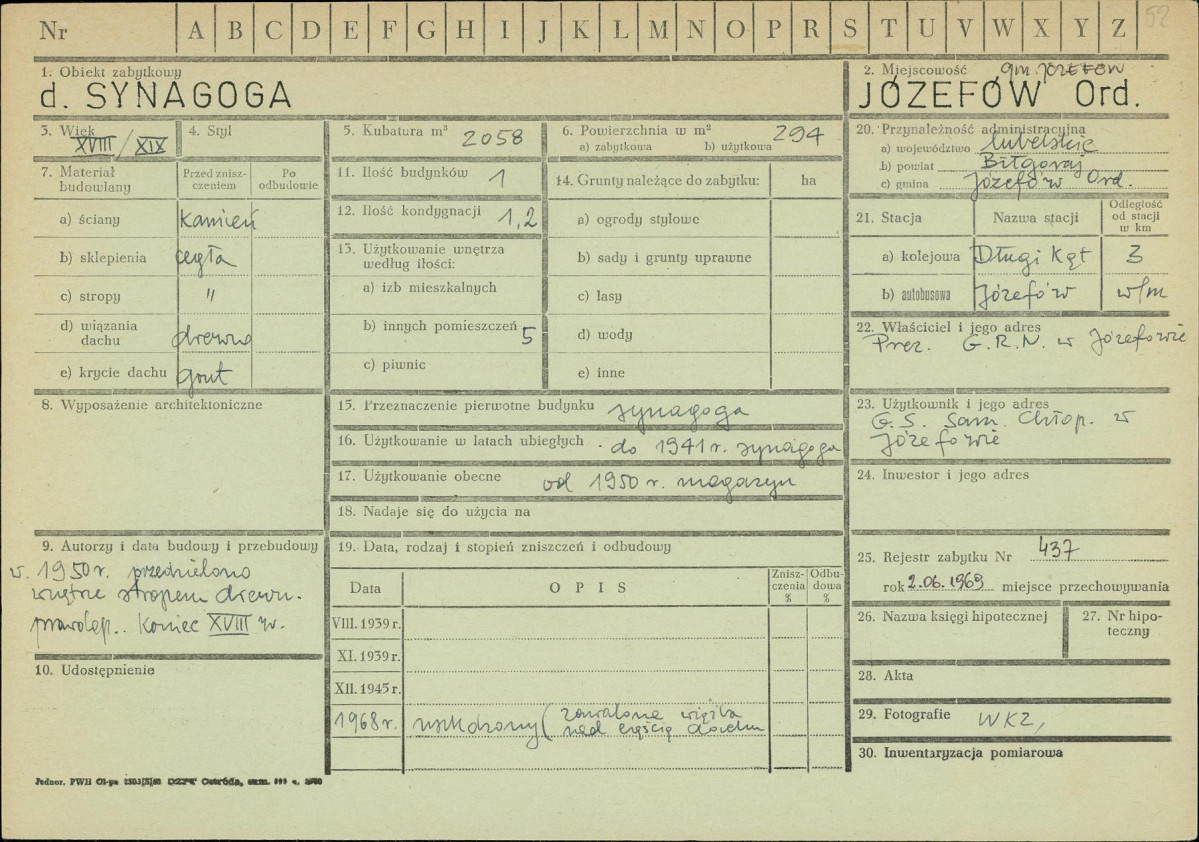 Nr A B C D E F G H I J K L M N O P R S T U V W X Y Z 52
1. Obiekt zabytkowy
d. SYNAGOGA
2. Miejscowość gm. JÓZEFÓW
JÓZEFÓW Ord.
3. Wiek
XVIII/XIX
4. Styl
5. Kubatura m³ 2058
6. Powierzchnia w m² 294
a) zabytkowa b) użytkowa
7. Materiał budowlany
Przed zniszczeniem
Po odbudowie
a) ściany kamień
b) sklepienia cegła
c) stropy "
d) wiązania dachu drewno
e) krycie dachu gont
8. Wyposażenie architektoniczne
9. Autorzy i data budowy i przebudowy
w. 1950r. przedzielono
wnętrze stropem drewn.
Koniec XVIII w.
10. Udostępnienie
11. Ilość budynków 1
12. Ilość kondygnacji 1,2
13. Użytkowanie wnętrza
według ilości:
a) izb mieszkalnych
b) innych pomieszczeń 5
c) piwnic
14. Grunty należące do zabytku: ha
a) ogrody stylowe
b) sady i grunty uprawne
c) lasy
d) wody
e) inne
15. Przeznaczenie pierwotne budynku synagoga
16. Użytkowanie w latach ubiegłych . do 1941r. synagoga
17. Użytkowanie obecne od 1950 r. magazyn
18. Nadaje się do użycia na
19. Data, rodzaj i stopień zniszczeń i odbudowy
Data
O P I S
Zniszczenia %
Odbudowa %
VIII. 1939 r.
XI. 1939 r.
XII. 1945 r.
1968 r. uszkodzony (zawalona więźba
nad częścią dachu
20. Przynależność administracyjna
a) województwo lubelskie
b) powiat Biłgoraj
c) gmina Józefów Ord.
21. Stacja
Nazwa stacji
Odległość od stacji w km
a) kolejowa Długi Kąt 3
b) autobusowa Józefów w/m
22. Właściciel i jego adres
Prez. G.R.N. w Józefowie
23. Użytkownik i jego adres
G.S. Sam. Chłop. w
Józefowie
24. Inwestor i jego adres
25. Rejestr zabytku Nr 437
rok 2.06.1969 miejsce przechowywania
26. Nazwa księgi hipotecznej
27. Nr hipoteczny
28. Akta
29. Fotografie WKZ,
30. Inwentaryzacja pomiarowa
Jednor. PWH